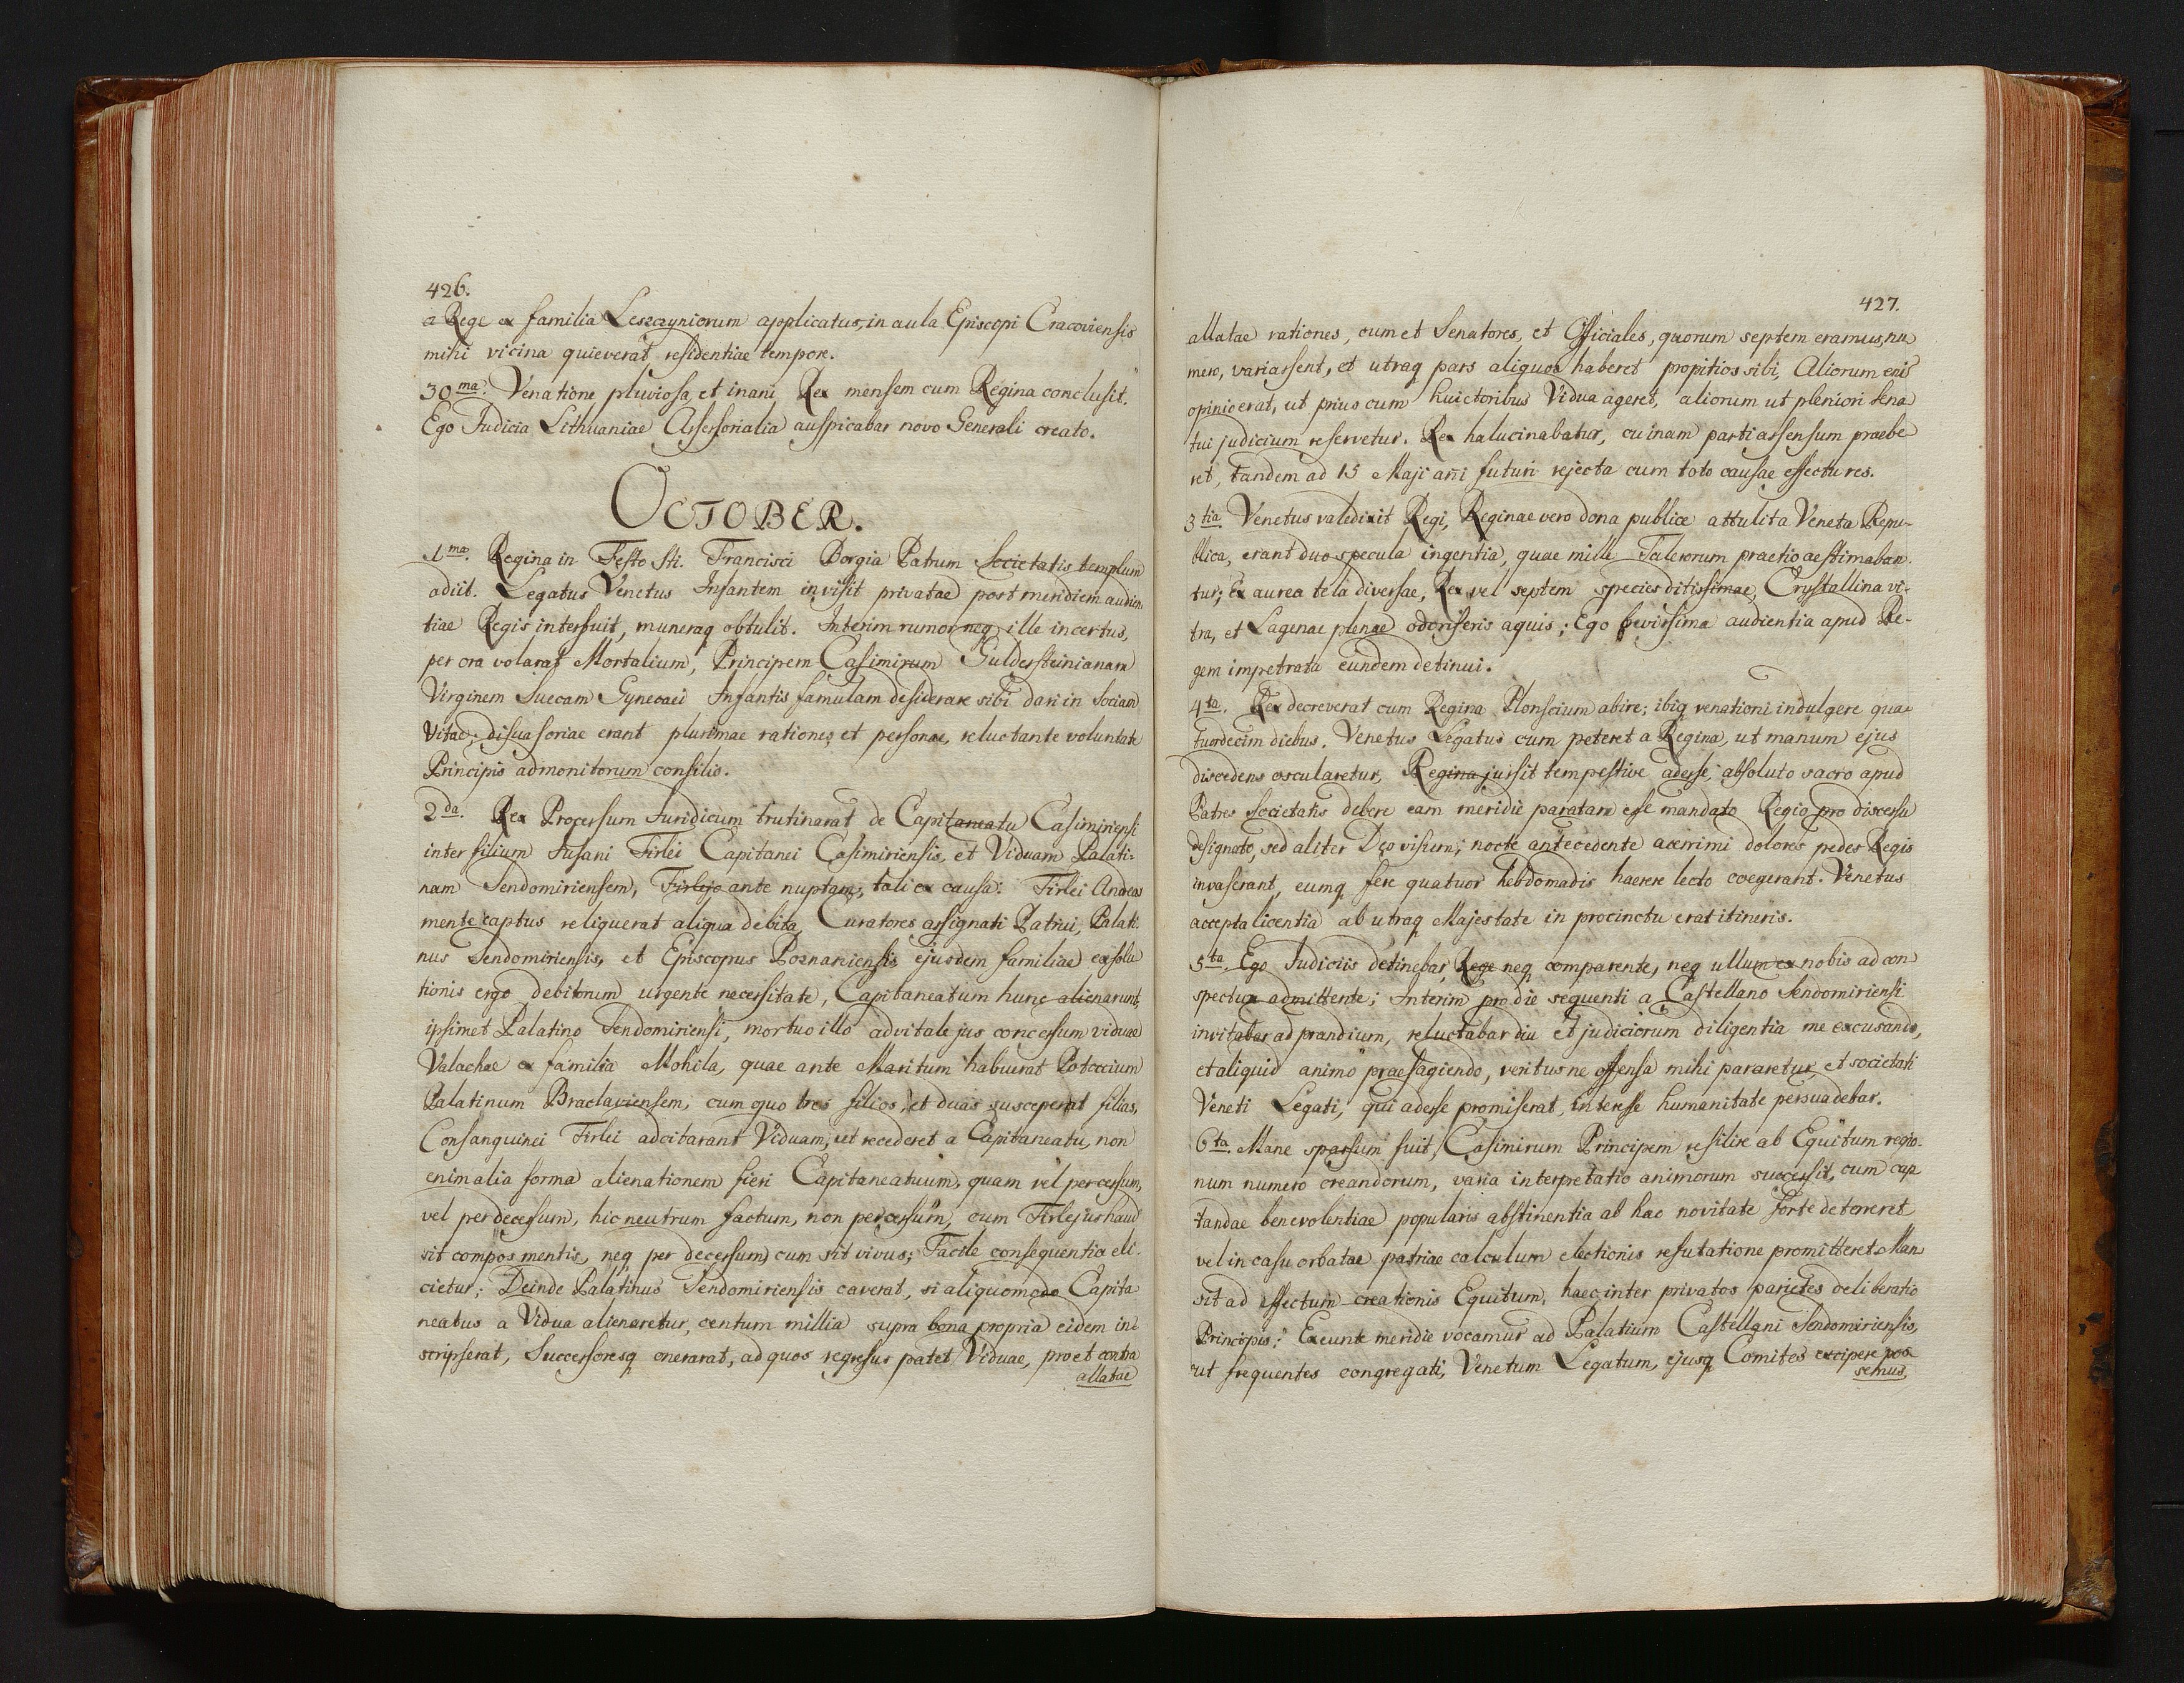 426.
a Rege ex familia Leszczyniorum applicatus, in aula Episcopi Cracoviensis
mihi vicina quieverat, residentiae tempore.
30ma. Venatione pluviosa, et inani Rex mensem cum Regina conclusit.
Ego Judicia Lithuaniae Assessorialia auspicabar novo Generali creato.
OCTOBER.
1ma. Regina in Festo Sti. Francisci Borgia Patrum Societatis templum
adiit. Legatus Venetus Infantem invisit privatae post meridiem audien
tiae Regis interfuit, muneraq obtulit. Interim rumor neq ille incertus,
per ora volarat Mortalium, Principem Casimirum Guldersteinianam
Virginem Suecam Gynecaei Infantis famulam desiderare sibi dari in Sociam
Vitae; disuasoriae erant plurimae rationes, et personae, reluctante voluntate
Principis admonitorum consilio.
2da. Rex Processum Juridicum trutinarat de Capitaneatu Casimiriensi
inter filium Susani Firlei Capitanei Casimiriensis, et Viduam Palati-
nam Sendomiriensem, Firlejo ante nuptam; tali ex causa: Firlei Andreas
mente captus reliquerat aliqua debita, Curatores assignati Patrui, Palati.
nus Sendomiriensis, et Episcopus Poznaniensis ejusdem familiae exsolu
tionis ergo debitorum urgente necessitate, Capitaneatum hunc alienarunt,
ipsimet Palatino Sendomiriensi, mortuo illo advitale jus concessum viduae
Valachae ex familia Mohila, quae ante Maritum habuerat Potoccium
Palatinum Braclaviensem, cum quo tres filios, et duas susceperat filias,
Consanguinei Firlei adcitarant Viduam, ut recederet a Capitaneatu, non
enim alia forma alienationem fieri Capitaneatuum, quam vel per cessum,
vel per decessum, hic neutrum factum, non per cessum, cum Firlejus haud
sit compos mentis, neq per decessum, cum sit vivus; Facile consequentia eli-
cietur; Deinde Palatinus Sendomiriensis caverat, si aliquomodo Capita
neatus a Vidua alienaretur, centum millia supra bona propria eidem in-
scripserat, Successoresq onerarat, ad quos regresus patet Viduae, pro et contra
allatae
427.
allatae rationes, cum et Senatores, et Officiales, quorum septem eramus, nu
mero, variassent, et utraq pars aliquos haberet propitios sibi, Aliorum eni
opinio erat, ut prius cum huictoribus Vidua ageret, aliorum ut pleniori Sena
tui judicium reservetur. Rex halucinabatur, cuinam parti assensum praebe
ret, tandem ad 15 Maji añi futuri rejecta cum toto causae effectu res.
3tia. Venetus valedixit Regi, Reginae vero dona publice attulit a Veneta Repu-
blica, erant duo specula ingentia, quae mille Talerorum praetio aestimaban.
tur; Ex aurea tela diversae, Rex vel septem species ditissimae, Crystallina vi-
tra, et Lagenae plenae odoriferis aquis; Ego brevissima audientia apud Re-
gem impetrata eundem detinui.
4ta. Rex decreverat cum Regina Plonscium abire; ibiq venationi indulgere qua-
tuordecim diebus. Venetus Legatus cum peteret a Regina, ut manum ejus
discedens oscularetur, Regina jussit tempestive adesse, absoluto sacro apud
Patres Societatis debere eam meridie paratam esse mandato Regio pro discessu
designato, sed aliter Deo visum; nocte antecedente acerrimi dolores pedes Regis
invaserant, eumq fere quatuor hebdomadis haerere lecto coegerant. Venetus
accepta licentia ab utraq Majestate in procinctu erat itineris.
5ta. Ego Judiciis detinebar, Rege neq comparente, neq ullum ex nobis ad con
spectum admittente; Interim pro die sequenti a Castellano Sendomiriensi
invitabar ad prandium, reluctabar diu et judiciorum diligentia me excusando,
et aliquid animo praesagiendo, veritus ne offensa mihi pararetur, et societati
Veneti Legati, qui adesse promiserat, interesse humanitate persuadebar.
6ta. Mane sparsum fuit, Casimirum Principem resilire ab Equitum regio-
num numero creandorum, varia interpretatio animorum successit, cum cap
tandae benevolentiae popularis abstinentia ab hac novitate forte deterreret
vel in casu orbatae patriae calculum electionis refutatione promitteret. Man
sit ad effectum creationis Equitum, haec inter privatos parietes deliberatio
Principis; Exeunte meridie vocamur ad Palatium Castellani Sendomiriensis,
ut frequentes congregati, Venetum Legatum, ejusq Comites excipere pos
semus,